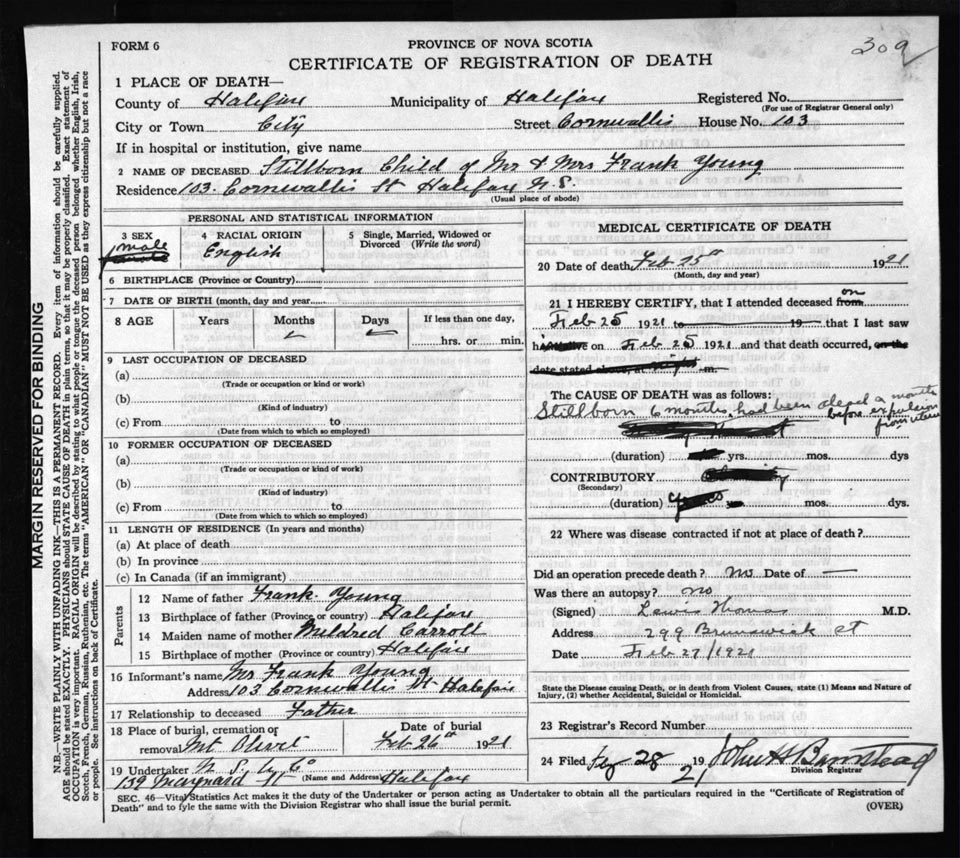 FORM 6
PROVINCE OF NOVA SCOTIA
309
CERTIFICATE OF REGISTRATION OF DEATH
1 PLACE OF DEATH—
County of Halifax Municipality of Halifax Registered No.
(For use of Registrar General only)
City or Town City Street Cornwallis House No. 103
If in hospital or institution, give name
2 NAME OF DECEASED Stillborn Child of Mr & Mrs Frank Young
Residence 103 Cornwallis St Halifax N.S.
(Usual place of abode)
PERSONAL AND STATISTICAL INFORMATION
3 SEX 4 RACIAL ORIGIN 5 Single, Married, Widowed or Divorced (Write the word)
male English
6 BIRTHPLACE (Province or Country)
7 DATE OF BIRTH (month, day and year)
8 AGE Years Months Days If less than one day,
hrs. or min.
9 LAST OCCUPATION OF DECEASED
(a)
(Trade or occupation or kind or work)
(b)
(Kind of industry)
(c) From to
(Date from which to which so employed)
10 FORMER OCCUPATION OF DECEASED
(a)
(Trade or occupation or kind of work)
(b)
(Kind of industry)
(c) From to
(Date from which to which so employed)
11 LENGTH OF RESIDENCE (In years and months)
(a) At place of death
(b) In province
(c) In Canada (if an immigrant)
Parents
12 Name of father Frank Young
13 Birthplace of father (Province or Country) Halifax
14 Maiden name of mother Mildred Carroll
15 Birthplace of mother (Province or country) Halifax
16 Informant's name Mr Frank Young
Address 103 Cornwallis St Halifax
17 Relationship to deceased Father
18 Place of burial, cremation or removal Mt Olivet Date of burial Feb 26th 1921
19 Undertaker N. S. U. Co
139 Maynard St (Name and Address) Halifax
MEDICAL CERTIFICATE OF DEATH
20 Date of death Feb 25th 1921
(Month, day and year)
21 I HEREBY CERTIFY, that I attended deceased from on
Feb 25 1921 to 19 that I last saw
h alive on Feb 25 1921 and that death occurred, on the
date stated above, at m.
The CAUSE OF DEATH was as follows:
Stillborn 6 months, had been dead a months
before expulsion
from uterus
(duration) yrs. mos. dys
CONTRIBUTORY
(Secondary)
(duration) mos. dys.
22 Where was disease contracted if not at place of death?
Did an operation precede death? No Date of —
Was there an autopsy? no
(Signed) Lewis Thomas M.D.
Address 299 Brunswick St
Date Feb 27/1921
State the Disease causing Death, or in death from Violent Causes, state (1) Means and Nature of
Injury, (2) whether Accidental, Suicidal or Homicidal.
23 Registrar's Record Number
24 Filed 28 1921 John H Barnstead
Division Registrar
SEC. 46—Vital Statistics Act makes it the duty of the Undertaker or person acting as Undertaker to obtain all the particulars required in the "Certificate of Registration of
Death" and to fyle the same with the Division Registrar who shall issue the burial permit.
(OVER)
MARGIN RESERVED FOR BINDING
N.B.—WRITE PLAINLY WITH UNFADING INK—THIS IS A PERMANENT RECORD. Every item of information should be carefully supplied.
AGE should be stated EXACTLY. PHYSICIANS should STATE CAUSE OF DEATH in plain terms, so that it may be properly classified. Exact statement of
OCCUPATION is very important. RACIAL ORIGIN will be described by stating to what people or tongue the deceased person belonged whether English, Irish,
Scotch, French, German, Russian, Ruthenian, etc. The terms "AMERICAN" OR "CANADIAN" MUST NOT BE USED as they express citizenship but not a race
or people. See instructions on back of Certificate.